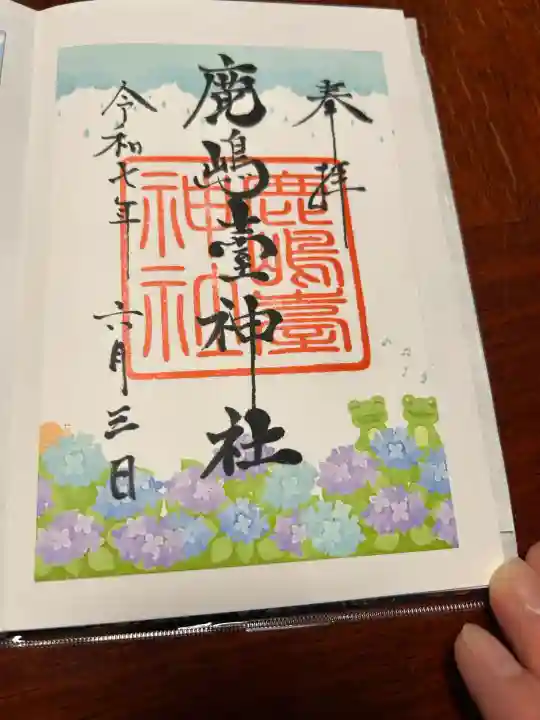 奉拝
鹿嶋臺神社
鹿嶋臺神社
令和七年 六月三日